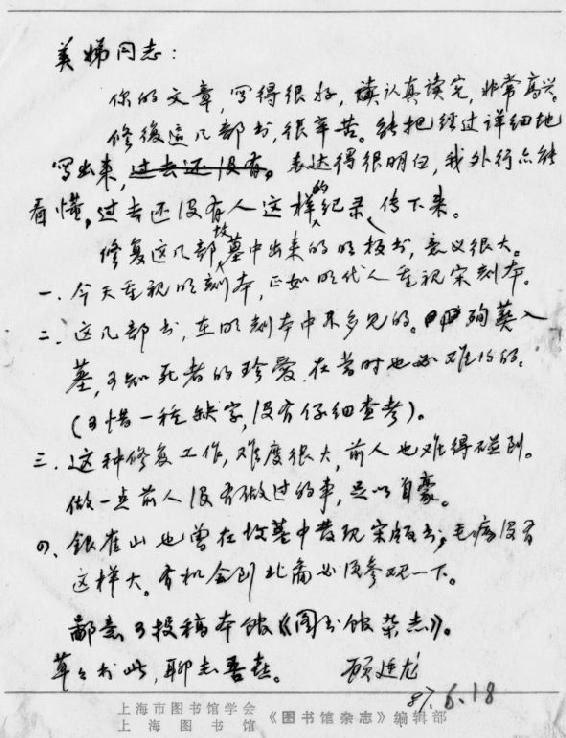 美娣同志：
你的文章，写得很好，读认真读完，非常高兴。
修復這几部书，很辛苦。能把经过详细地
写出来，过去还没有。表达得很明白，我外行亦能
看懂。过去还没有人这样的纪录、传下来。
修复这几部坟墓中出来的明板书，意义很大。
一、今天重视明刻本，正如明代人重视宋刻本。
二、这几部书，在明刻本中不多见的。殉葬入
墓，可知死者的珍爱，在当时也必难得的。
（可惜一种缺字，没有仔细查考）。
三、这种修复工作，难度很大，前人也难得碰到。
做一点前人没有做过的事，足以自豪。
四、銀雀山也曾在坟墓中发现宋版书，毛病没有
这样大。有机会到北京必须参观一下。
鄙意可投稿本馆《图书馆杂志》。
草草书此，聊志吾喜。 顾廷龙
87.6.18
上海市图书馆学会
上海图书馆 《图书馆杂志》编辑部